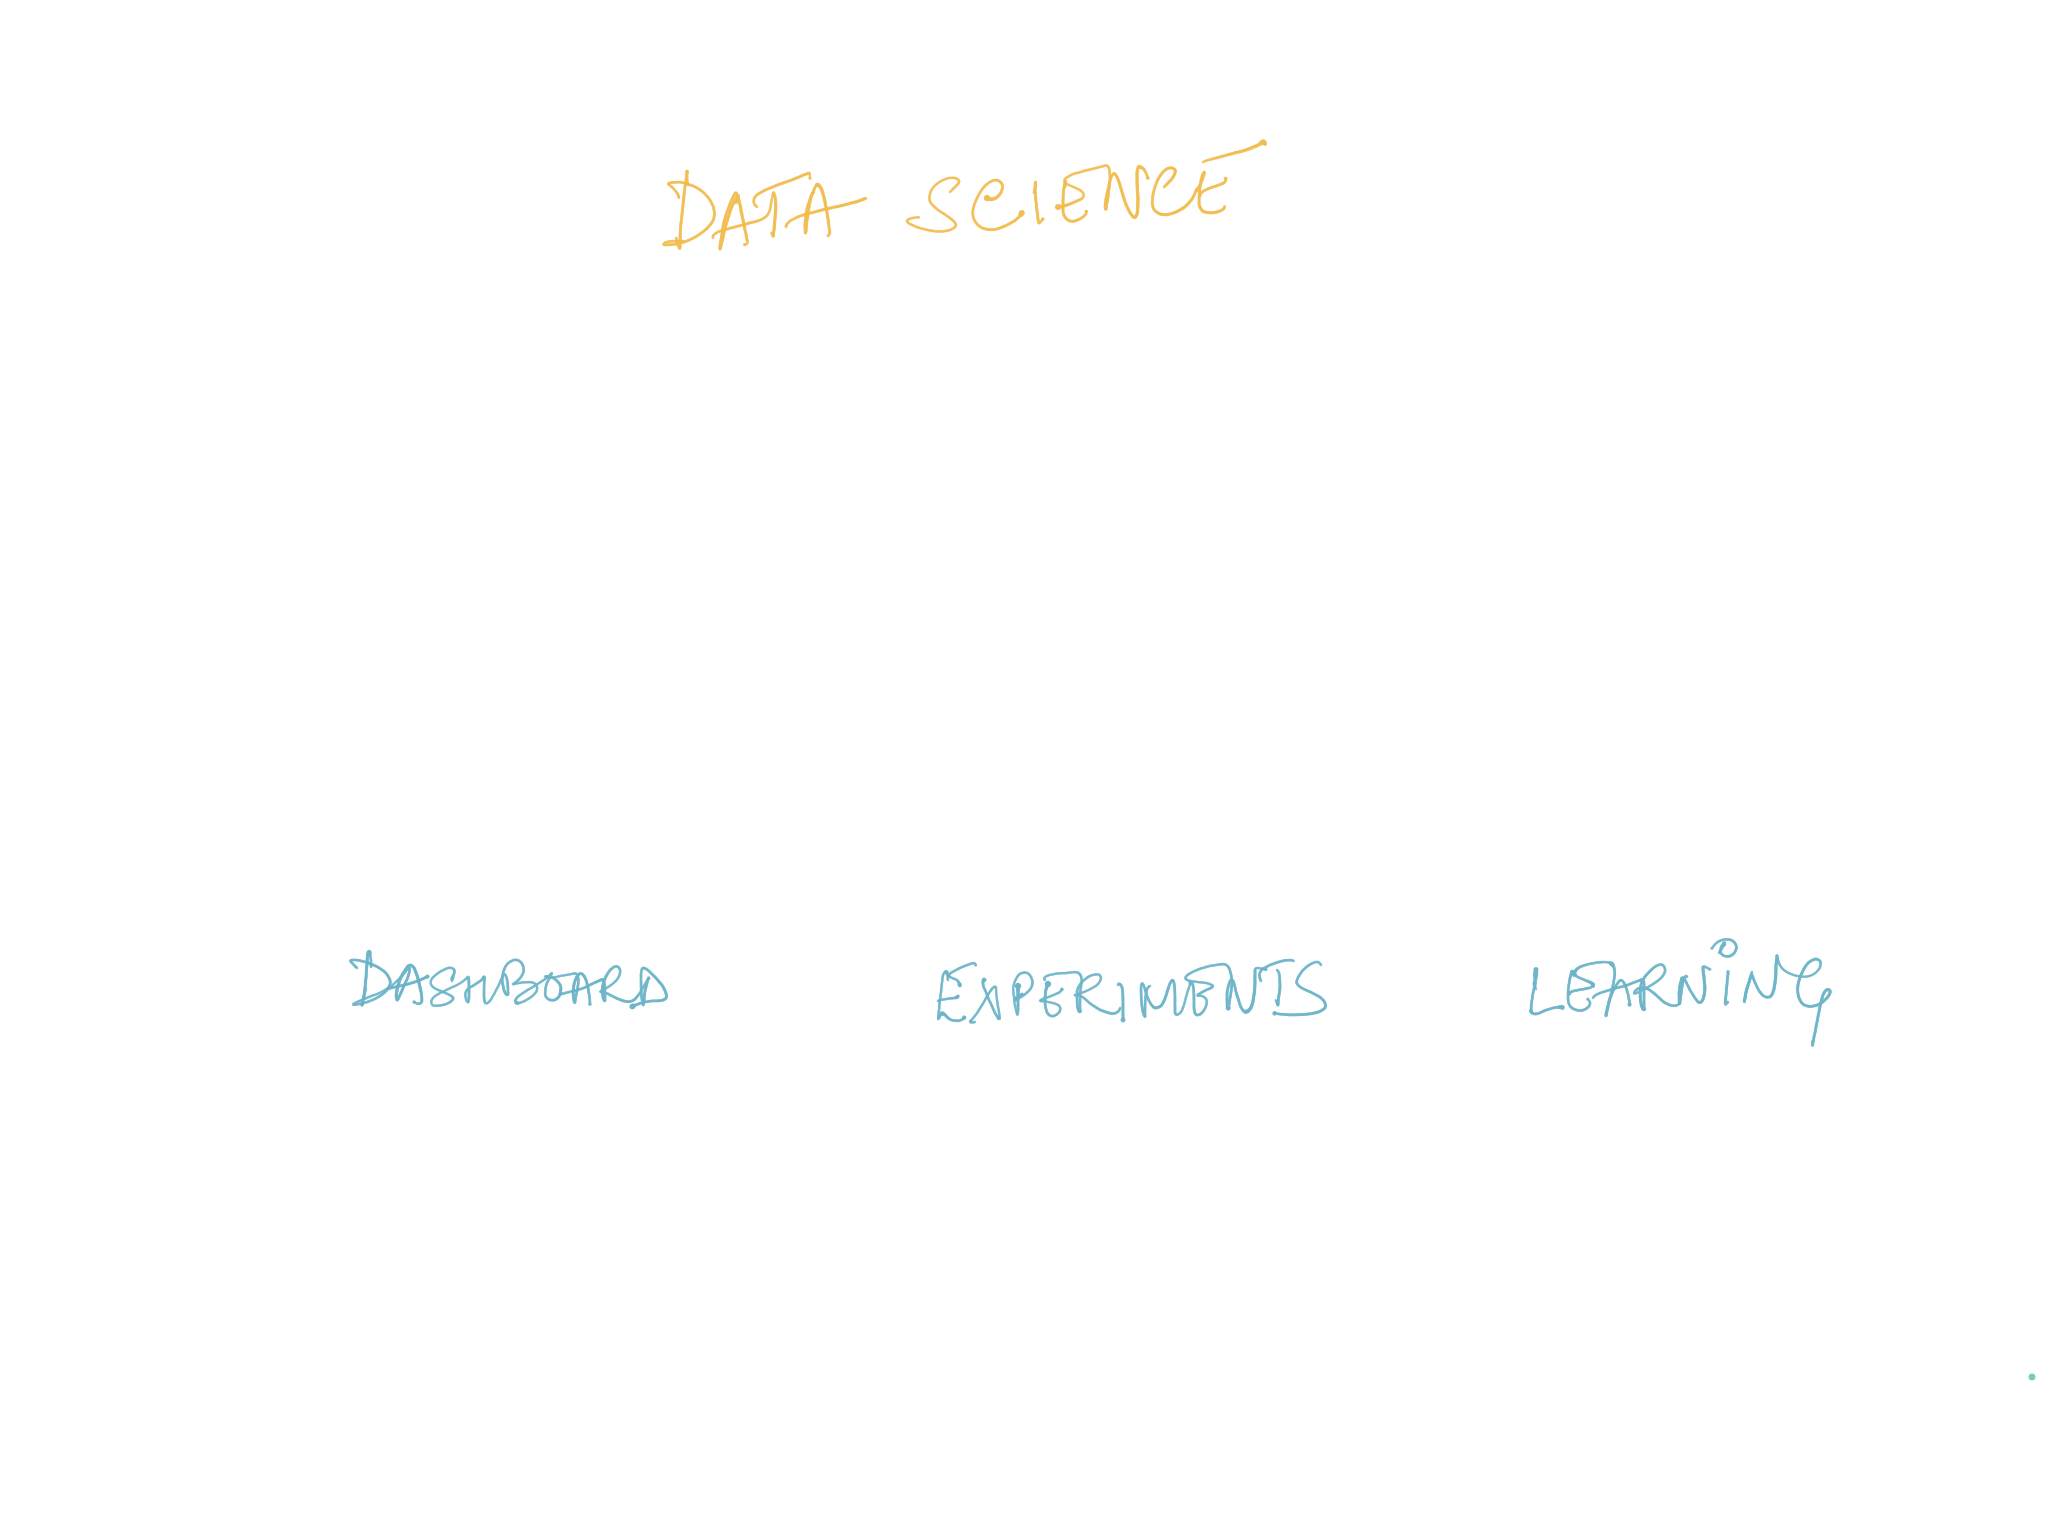 DATA SCIENCE
DASHBOARD EXPERIMENTS LEARNING